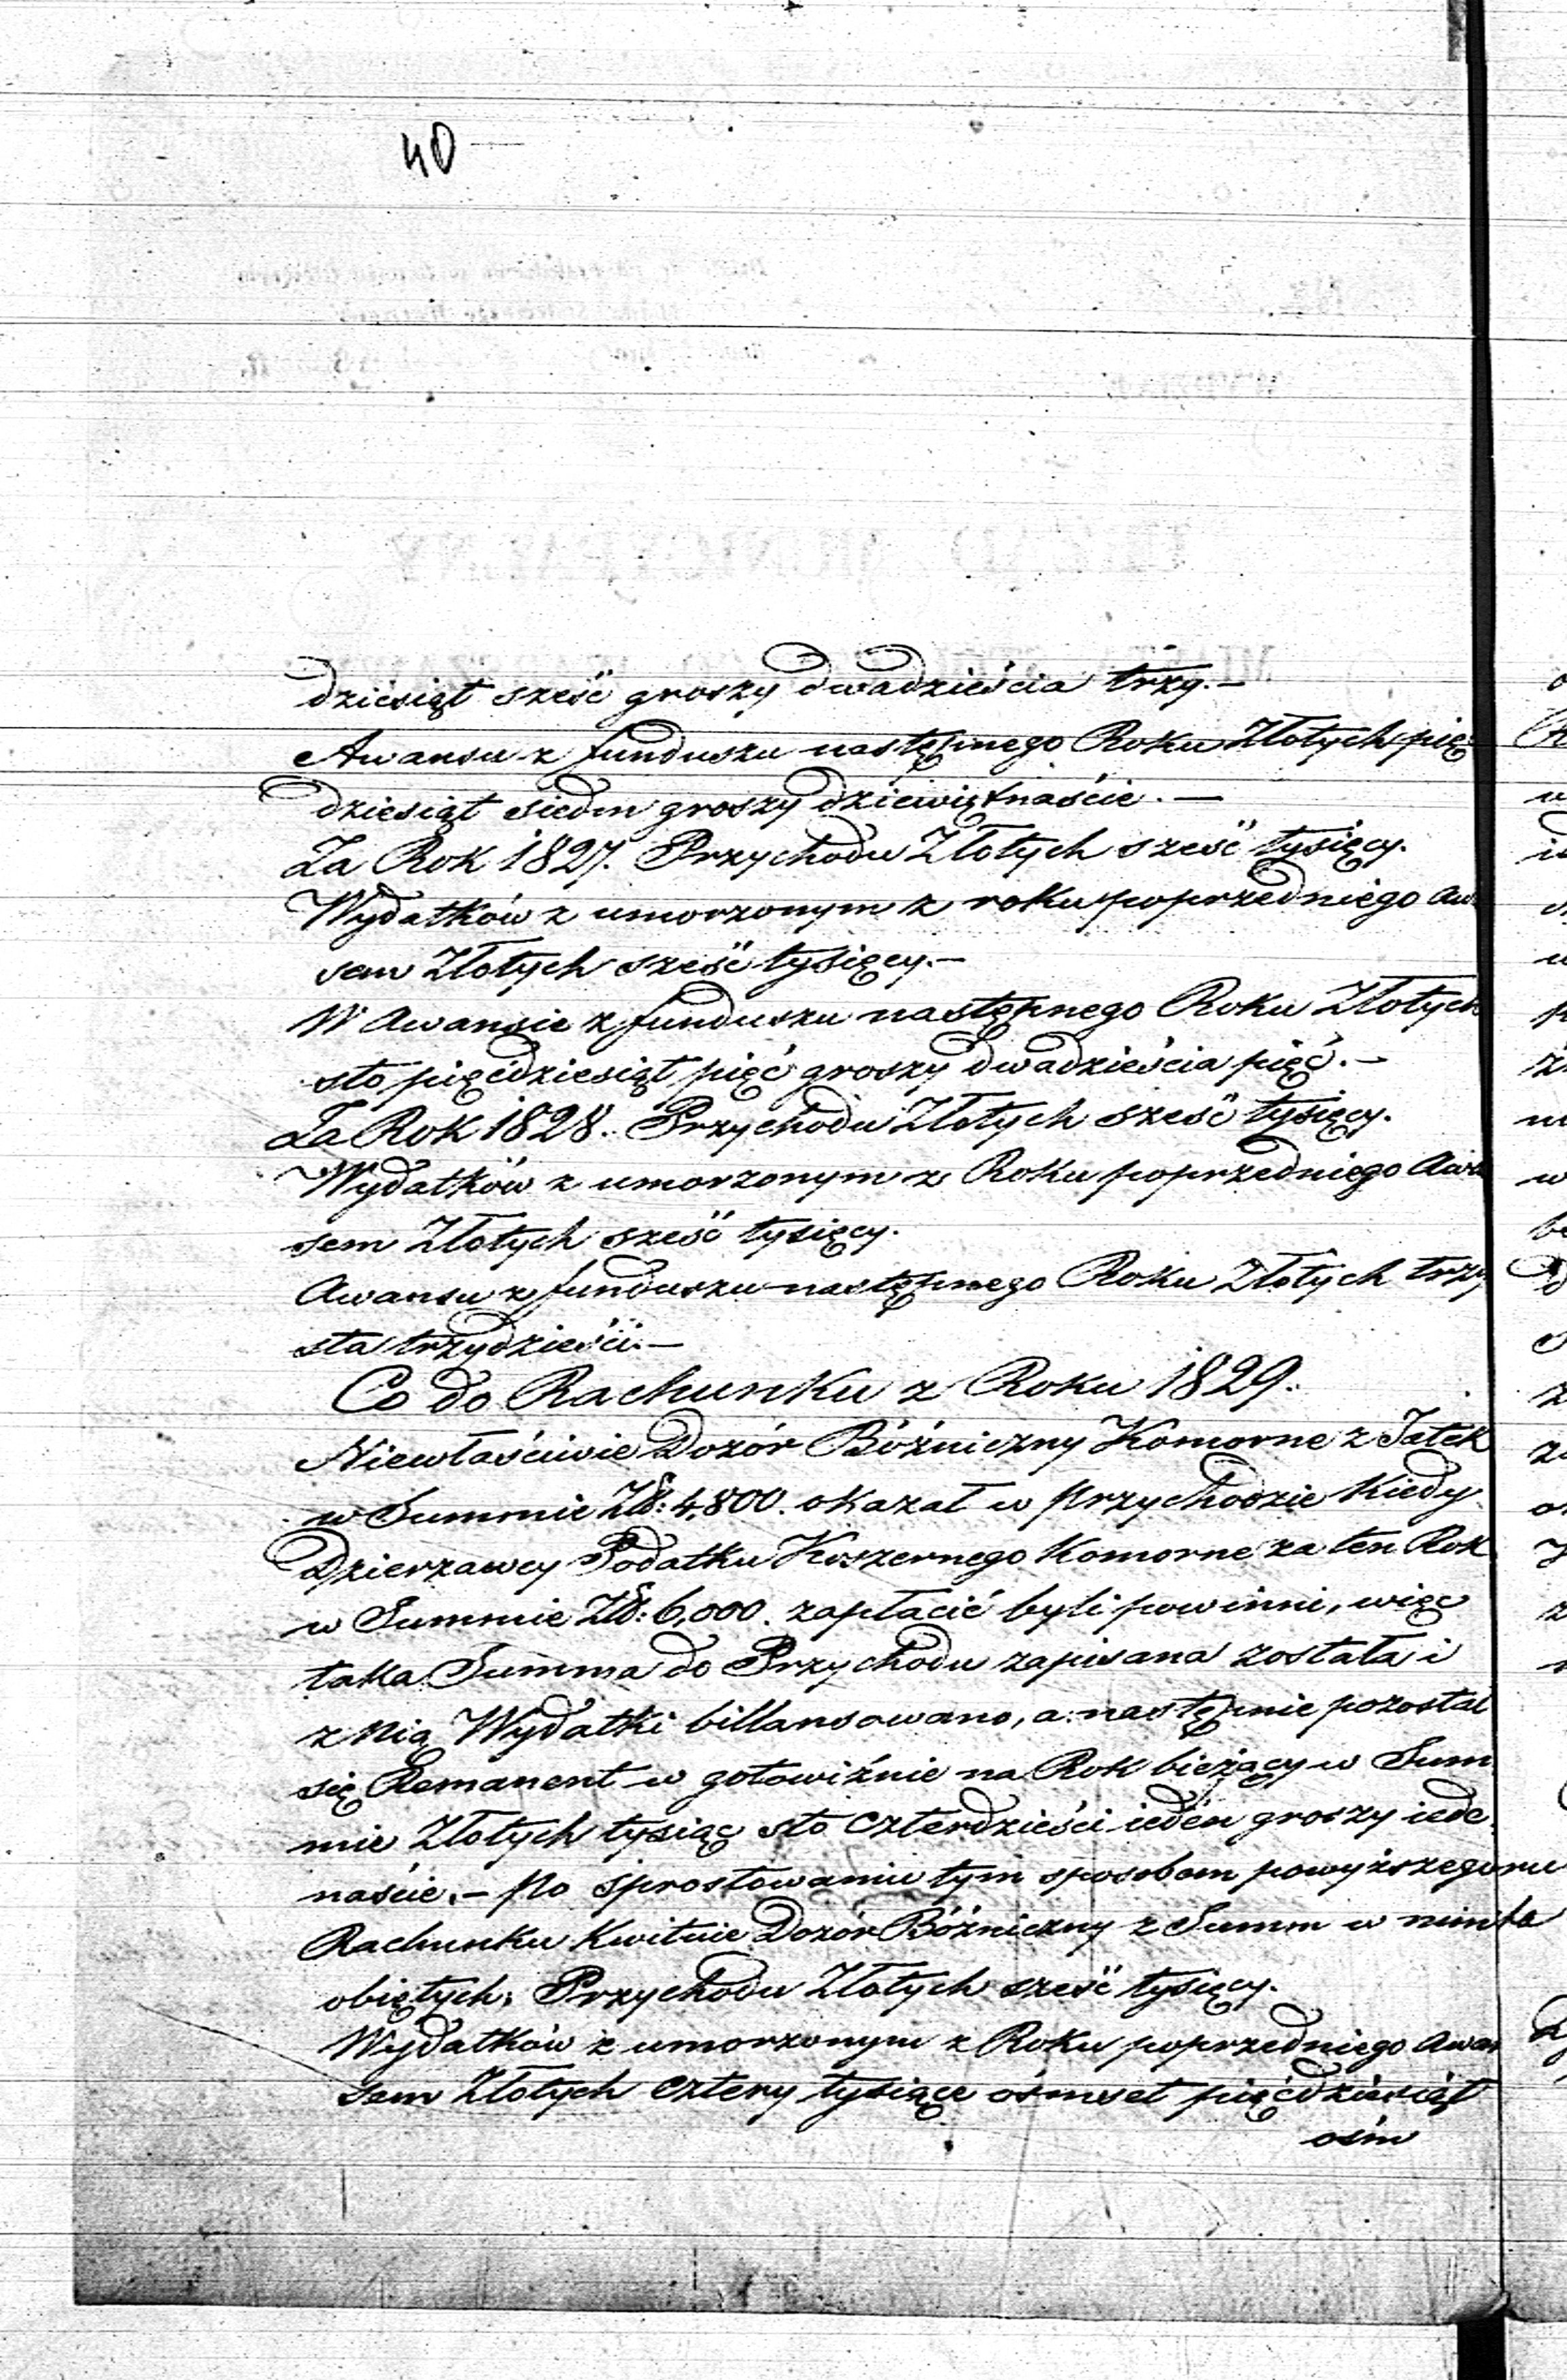 40
dziesiąt sześć groszy dwadzieścia trzy.—
Awansu z funduszu następnego Roku Złotych pięć
dziesiąt siedm groszy dziewiętnaście.—
Za Rok 1827. Przychodu Złotych sześć tysięcy.
Wydatków z umorzonym z roku poprzedniego awan
sem Złotych sześć tysięcy.—
W Awansie z funduszu następnego Roku Złotych
sto pięćdziesiąt pięć groszy dwadzieścia pięć.—
Za Rok 1828. Przychodu Złotych sześć tysięcy.
Wydatków z umorzonym z Roku poprzedniego Awan
sem Złotych sześć tysięcy.
Awansu z funduszu następnego Roku Złotych trzy
sta trzydzieści.—
Co do Rachunku z Roku 1829.
Niewłaściwie Dozór Bóżniczny Komorne z Jatek
w Summie Zł: 4,800. okazał w przychodzie kiedy
Dzierzawcy Podatku Koszernego Komorne za ten Rok
w Summie Zł: 6,000. zapłacić byli powinni, więc
taka Summa do Przychodu zapisana została i
z nią Wydatki billansowano, a następnie pozostał
się Remanent w gotowiźnie na Rok bieżący w Sum
mie Złotych tysiąc sto czterdzieści ieden groszy iede
naście.— Po sprostowaniu tym sposobem powyższego
Rachunku kwituie Dozór Bóżniczny z Summ w nim
obiętych; Przychodu Złotych sześć tysięcy.
Wydatków z umorzonym z Roku poprzedniego awan
sem Złotych cztery tysiące ośmset pięćdziesiąt
ośm